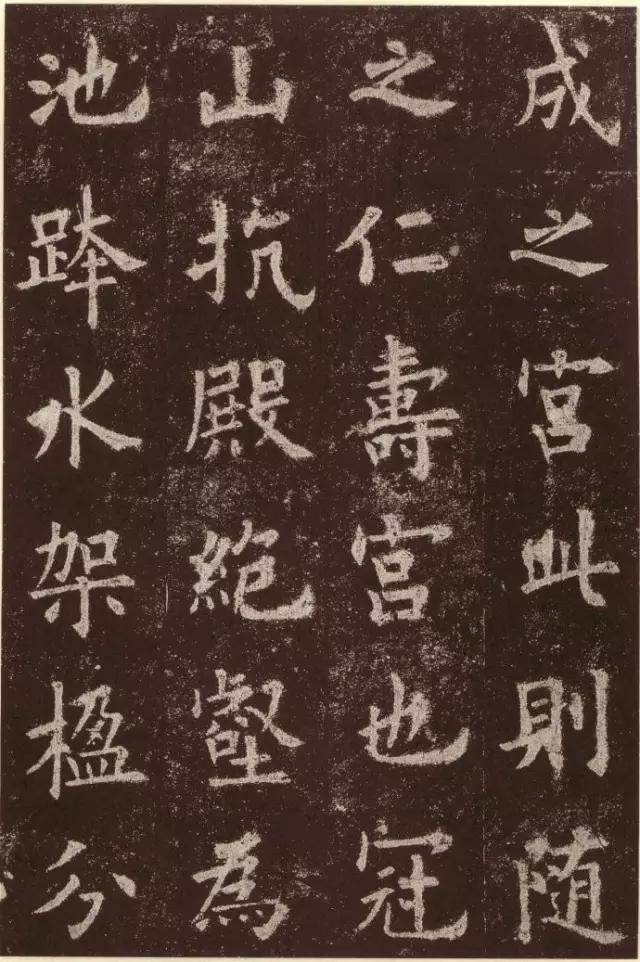 成之宮此則隨
之仁壽宮也冠
山抗殿絶壑為
池跨水架楹分